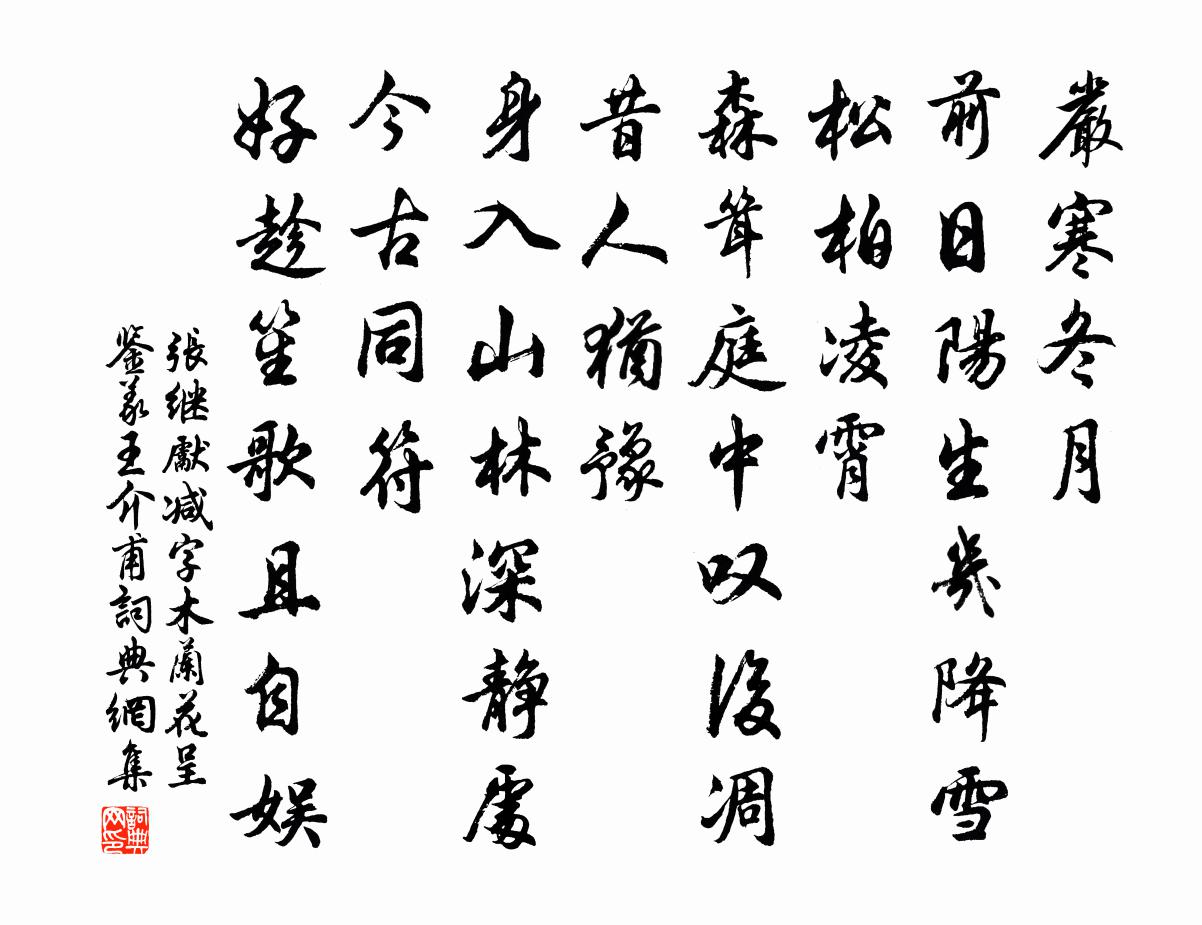 嚴寒冬月
前日陽生幾降雪
松柏凌霄
森聳庭中叹後凋
昔人猶豫
身入山林深靜處
今古同符
好趁笙歌且自娛
張继獻减字木蘭花呈
鉴義王介甫詞典網集
詞典
网印